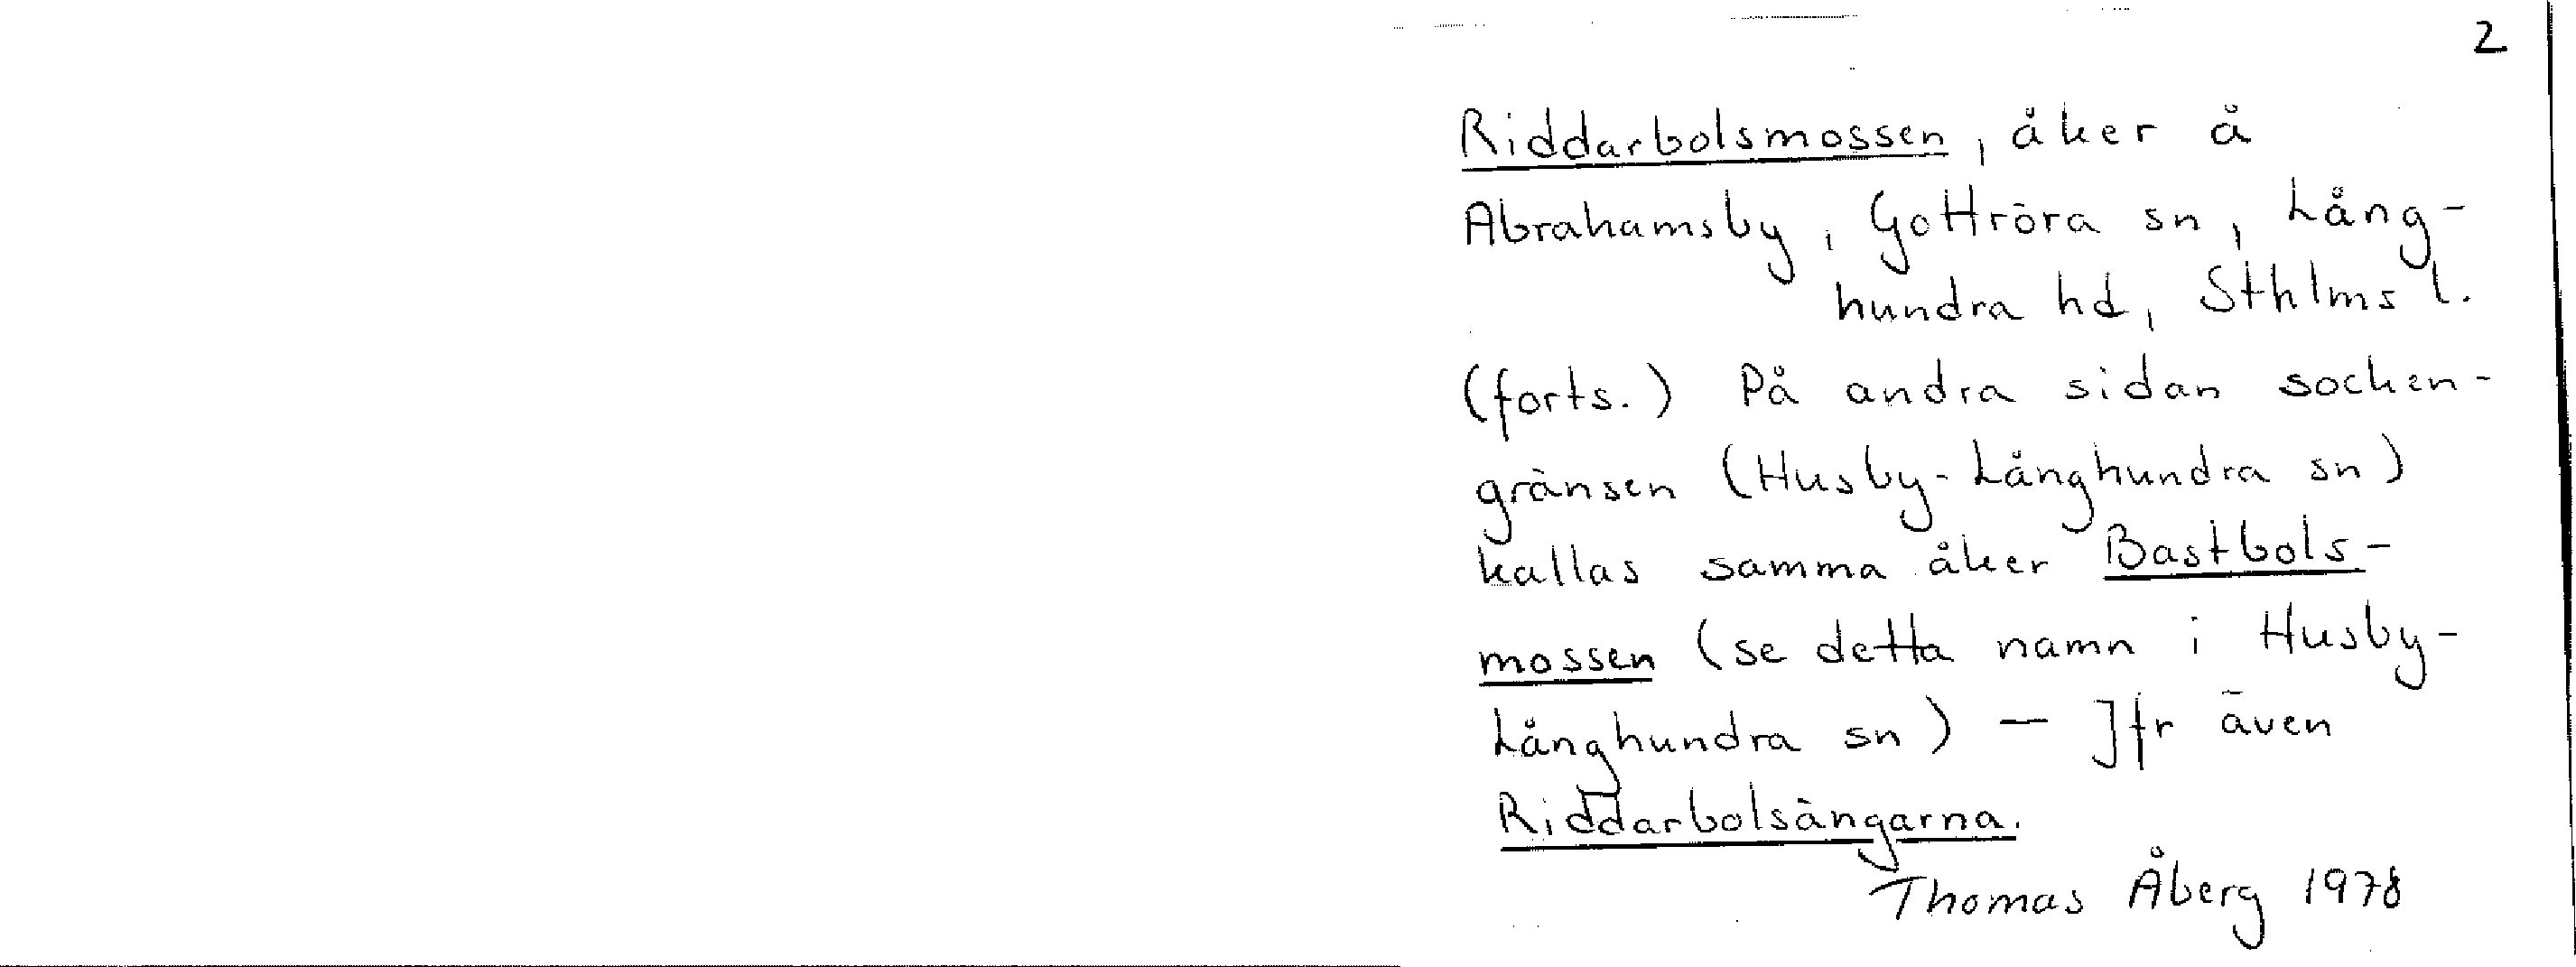 2
Riddarbolsmossen, åker å
Abrahamsby, Gottröra sn, Lång-
hundra hd, Sthlms l.
(forts.) På andra sidan socken-
gränsen (Husby-Långhundra sn)
kallas samma åker Bastbols-
mossen (se detta namn i Husby-
Långhundra sn) — Jfr även
Riddarbolsängarna.
Thomas Åberg 1978